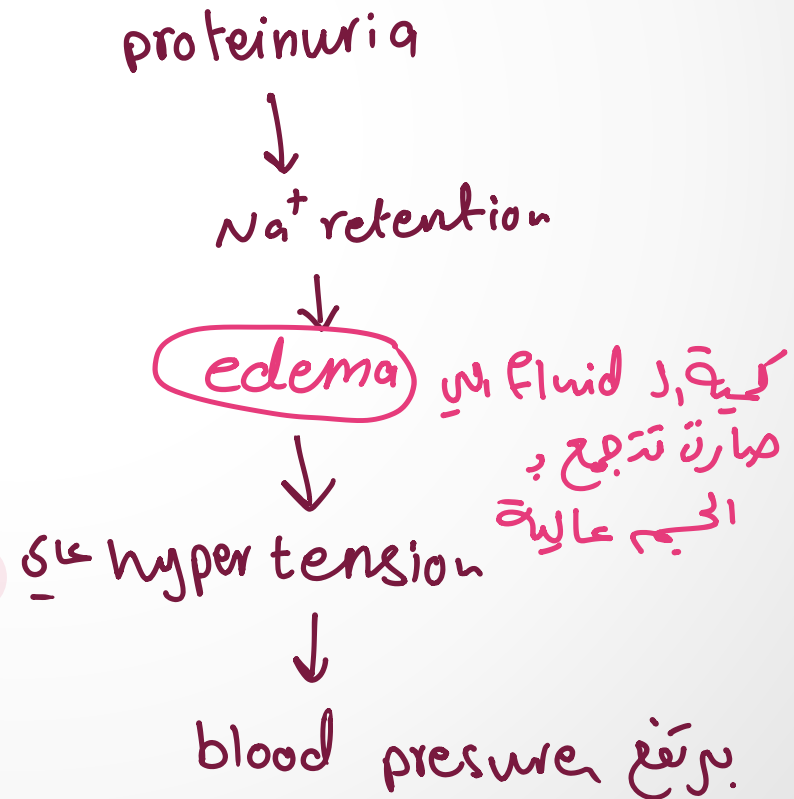 proteinuria
Na⁺ retention
edema
كمية الـ fluid الي
صارة تتجمع بـ
الجسم عالية
hypertension
blood presure برتفع